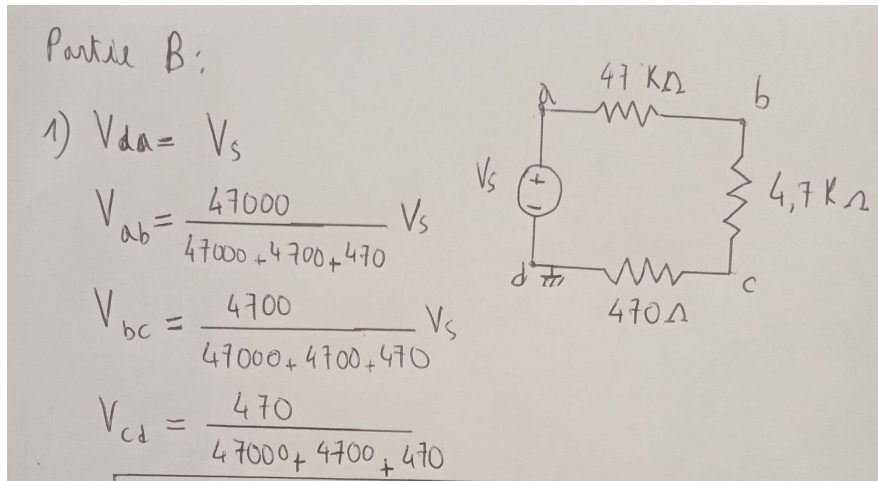 Partie B:
1) Vda = Vs
Vab = 47000 / 47000+4700+470 Vs
Vbc = 4700 / 47000+4700+470 Vs
Vcd = 470 / 47000+4700+470
a
47 KΩ
b
Vs
+
-
4,7 KΩ
d
470 Ω
c